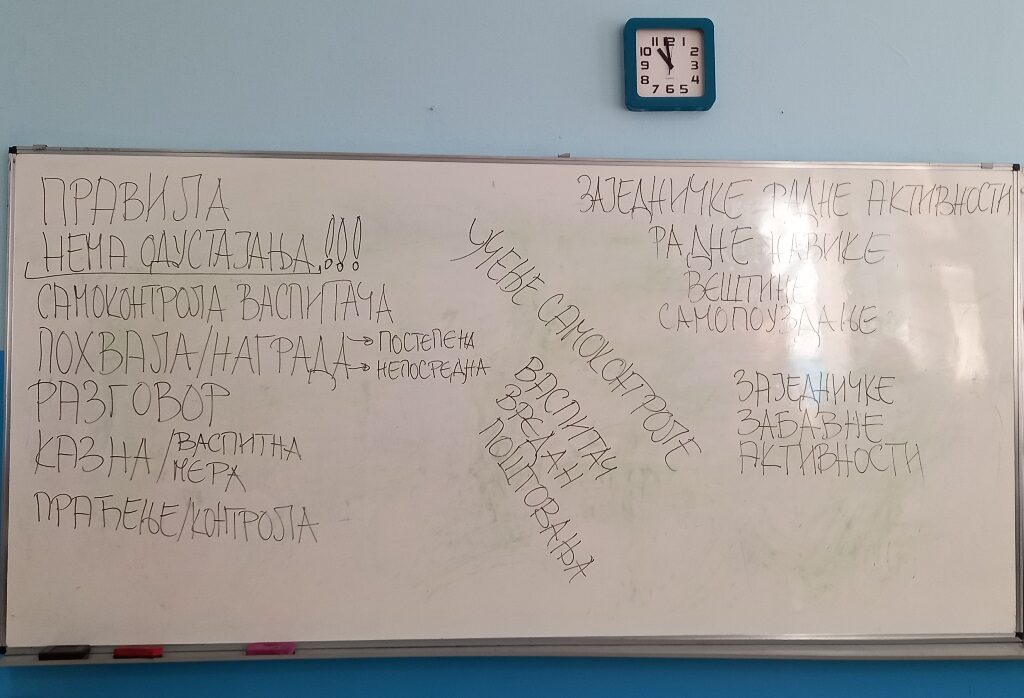 11 12 1
10 2
9 3
8 4
7 6 5
ПРАВИЛА
НЕМА ОДУСТАЈАЊА!!!
САМОКОНТРОЛА ВАСПИТАЧА
ПОХВАЛА/НАГРАДА → ПОСТЕПЕНА
→ НЕПОСРЕДНА
РАЗГОВОР
КАЗНА/ВАСПИТНА
МЕРА
ПРАЋЕЊЕ/КОНТРОЛА
УЧЕЊЕ САМОКОНТРОЛЕ
ВАСПИТАЧ
ВРЕДАН
ПОШТОВАЊА
ЗАЈЕДНИЧКЕ РАДНЕ АКТИВНОСТИ
РАДНЕ НАВИКЕ
ВЕШТИНЕ
САМОПОУЗДАЊЕ
ЗАЈЕДНИЧКЕ
ЗАБАВНЕ
АКТИВНОСТИ